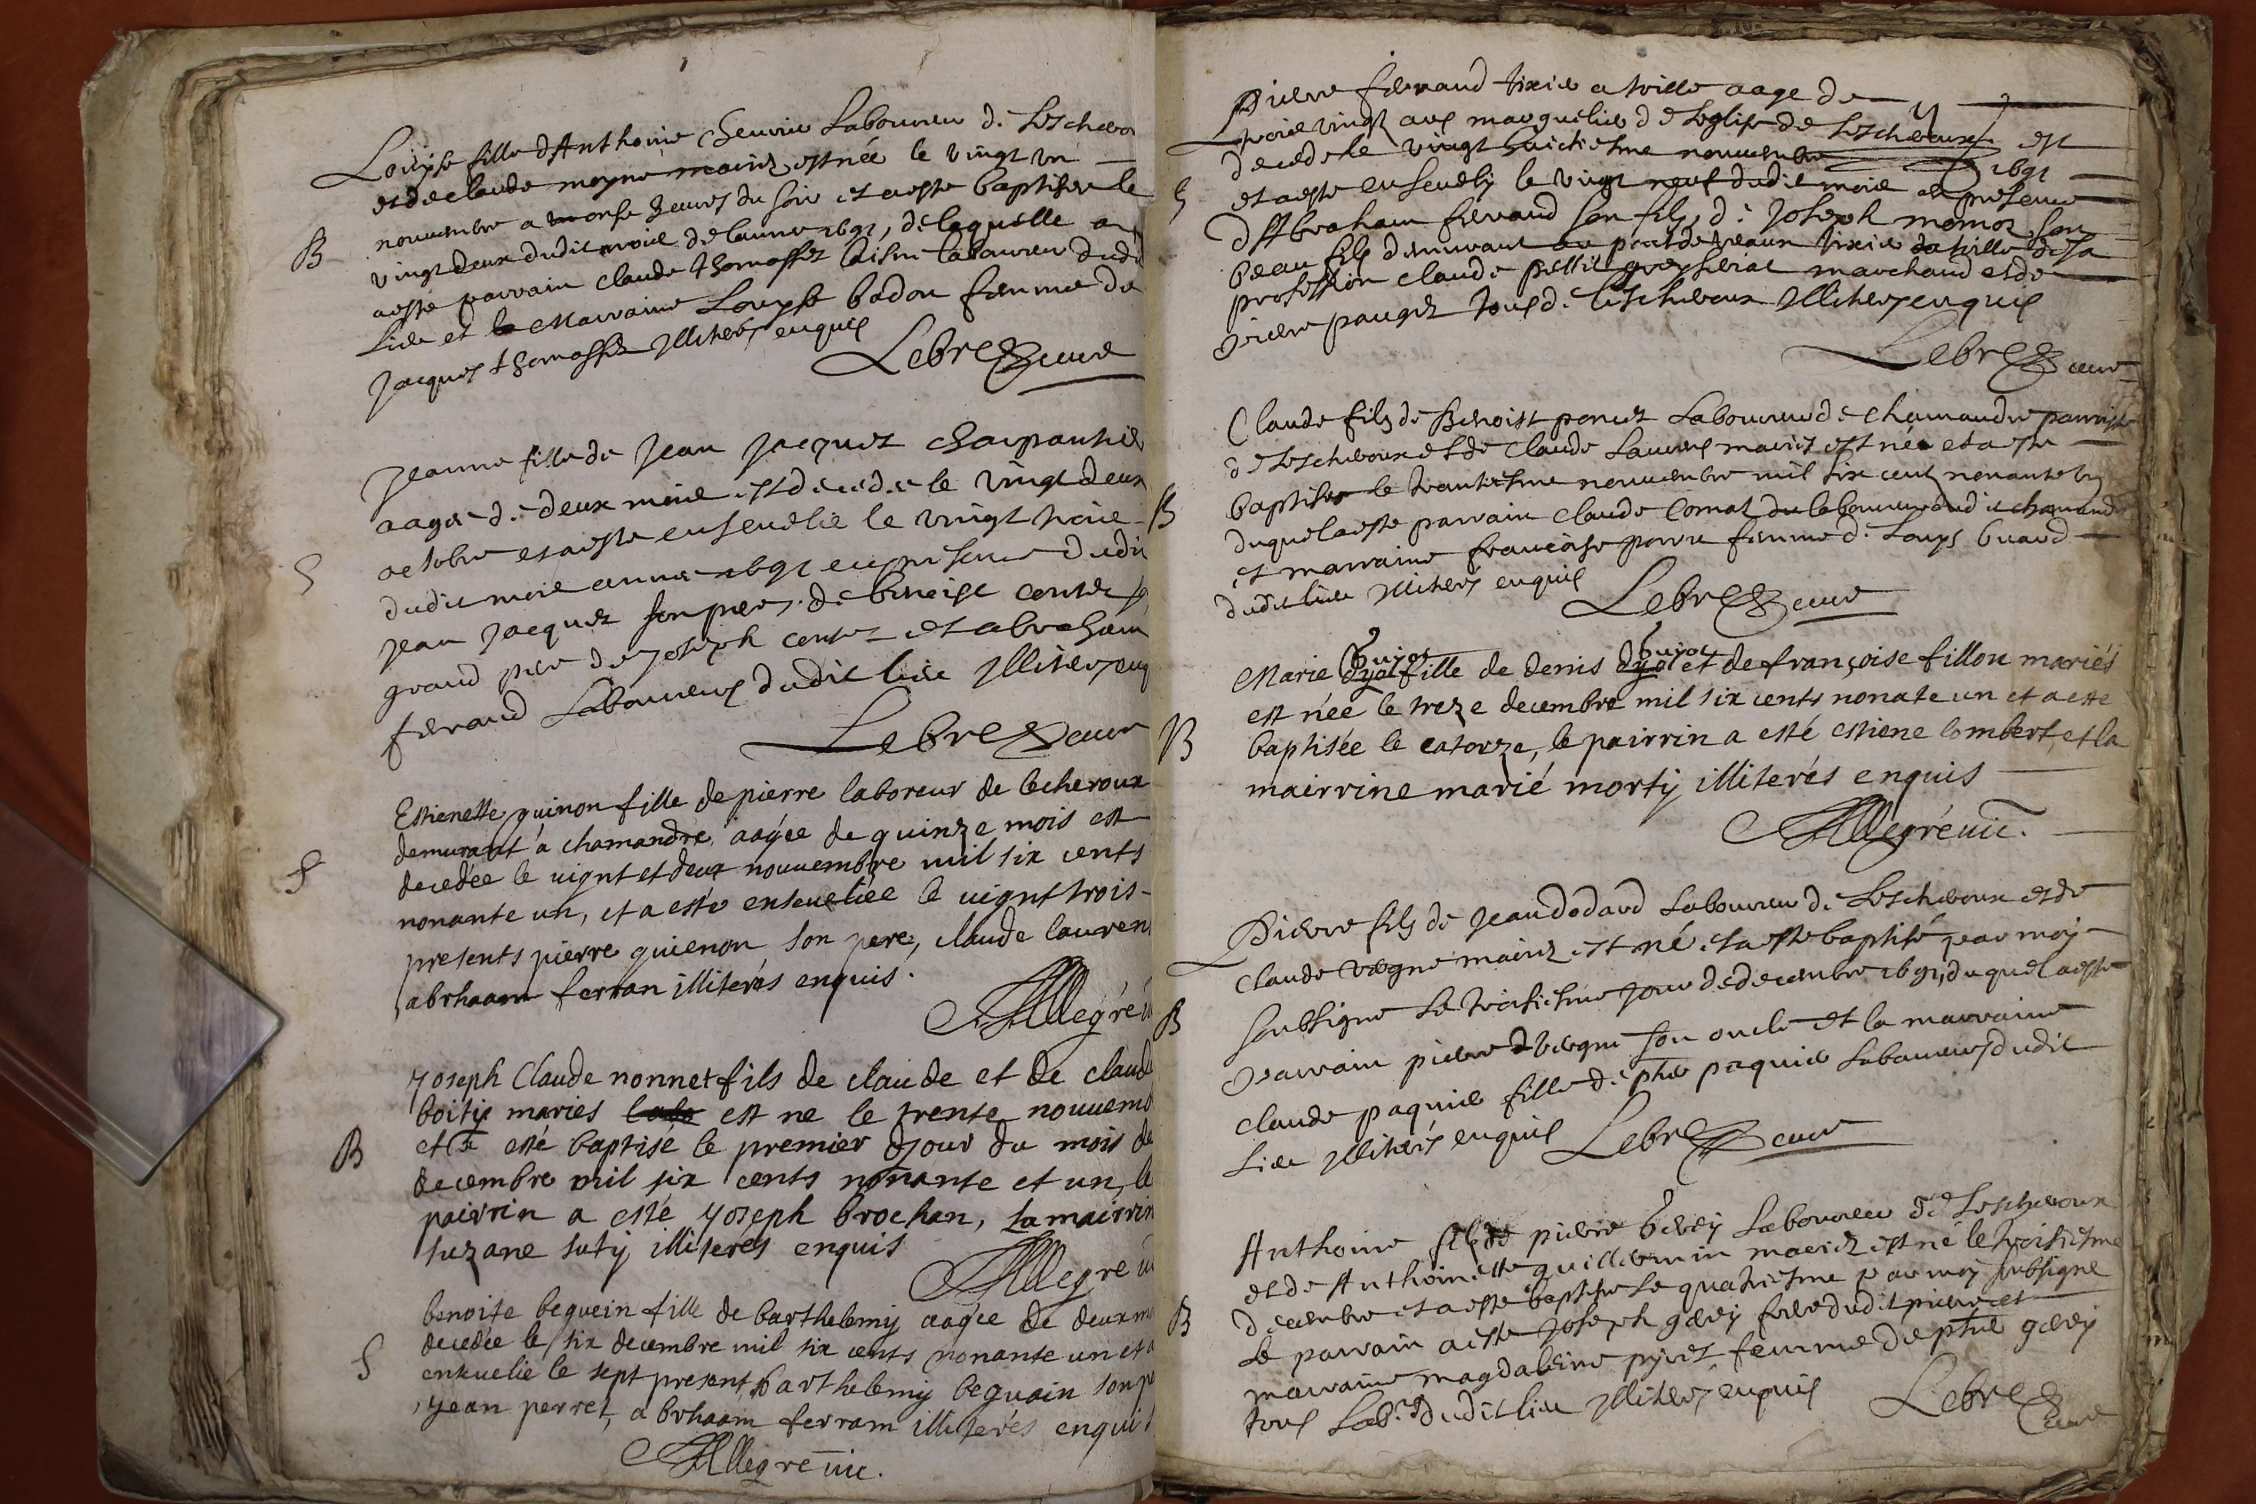 Louyse fille d'Anthoine Laboureur de Lescherou
et de claude moyne mariez est née le vingt un
B
nouuembre a heures du soir et a esté baptisée le
vingt deux dudit mois de lannee 1691, de laquelle a
esté parrain claude thomasset laisné laboureur dudi
lieu et la Marraine Louyse bodou femme de
Jacques thomasset Illiterés enquis
Lebre cure
Jeanne fille de Jean Jacquet charpantié
aagée de deux mois est decedée le vingt deux
S
octobre et a esté enseuelie le vingt trois
dudit mois annee 1691 en presence dudit
Jean Jacquet son pere, de benoist contet
grand pere de Joseph contet et abraham
feraud Laboureurs dudit lieu Illiterés enq
Lebre cure
Estienette guinon fille de pierre laboreur de lecheroux
demurant a chamandre, aagée de quinze mois est
S
decedée le uignt et deux nouuembre mil six cents
nonante un, et a esté enseueliée le uignt trois
presents pierre guienon son pere, claude lauren
abrhaam ferran illiterés enquis.
Allegré ui
Joseph Claude nonnet fils de claude et de claud
boity mariés est ne le trente nouuemb
B
et a esté baptisé le premier jour du mois de
decembre mil six cents nonante et un, le
pairrin a esté yoseph brochan, La mairrin
suzane suty illiterés enquis
Allegre ui
benoite beguein fille de barthelemy aagée de deux m
S
decedée le six decembre mil six cents nonante un et a
enseuelie le sept present, barthelemy beguain son p
, yean perret, abrhaam ferram illiterés enquis
Allegré uic.
Pierre feraud tixie a toille aage de
trois vingt ans marguelié de Leglise de Lescheroux est
decede le vingt huictiesme nouuembre 1691
S
et a esté enseuely le vingt neuf dudit mois en presence
d'Abraham feraud son fils, de Joseph momot son
beau fils demurant au tixie de toille de sa
profession claude pellit marchand et de
pierre pauget tous de lescheroux Illiterés enquis
Lebre cure
Claude fils de Benoist poncet Laboureur de chamandre parroisse
de Lescheroux et de Claude Laurens mariez est née et a esté
B
baptisé le trantiesme nouuembre mil six cent nonante un
duquel a esté parrain claude Comat laboureur dudit chamandre
et marraine francoise femme de Louys
dudit lieu Illiterés enquis
Lebre cure
Marie buyat fille de denis buyat et de françoise fillon mariés
est née le treze decembre mil six cents nonate un et a esté
B
baptisée le catorze, le pairrin a esté estiene lombert, et la
mairrine marié morty illiterés enquis
Allegré uic.
Pierre fils de Jean dodard Laboureur de Lescheroux et de
Claude mariez est né et a esté baptisé par moy
B
soubsigne le troisiesme jour de decembre 1691, duquel a esté
parrain pierre son oncle et la marraine
claude paquié fille de phe paquié Laboureurs dudit
Lieu Illiterés enquis Lebre cure
Anthoine fils de pierre gerey Laboureur de Lescheroux
et de Anthoinette guillemin mariez est né le troisiesme
B
decembre et a esté baptisé le quatriesme par moy soubsigne
le parrain a esté Joseph gerey frere dudit pierre et
marraine magdaleine pyret femme de phe gerey
tous Labrs dudit lieu Illiterés enquis
Lebre
Cure